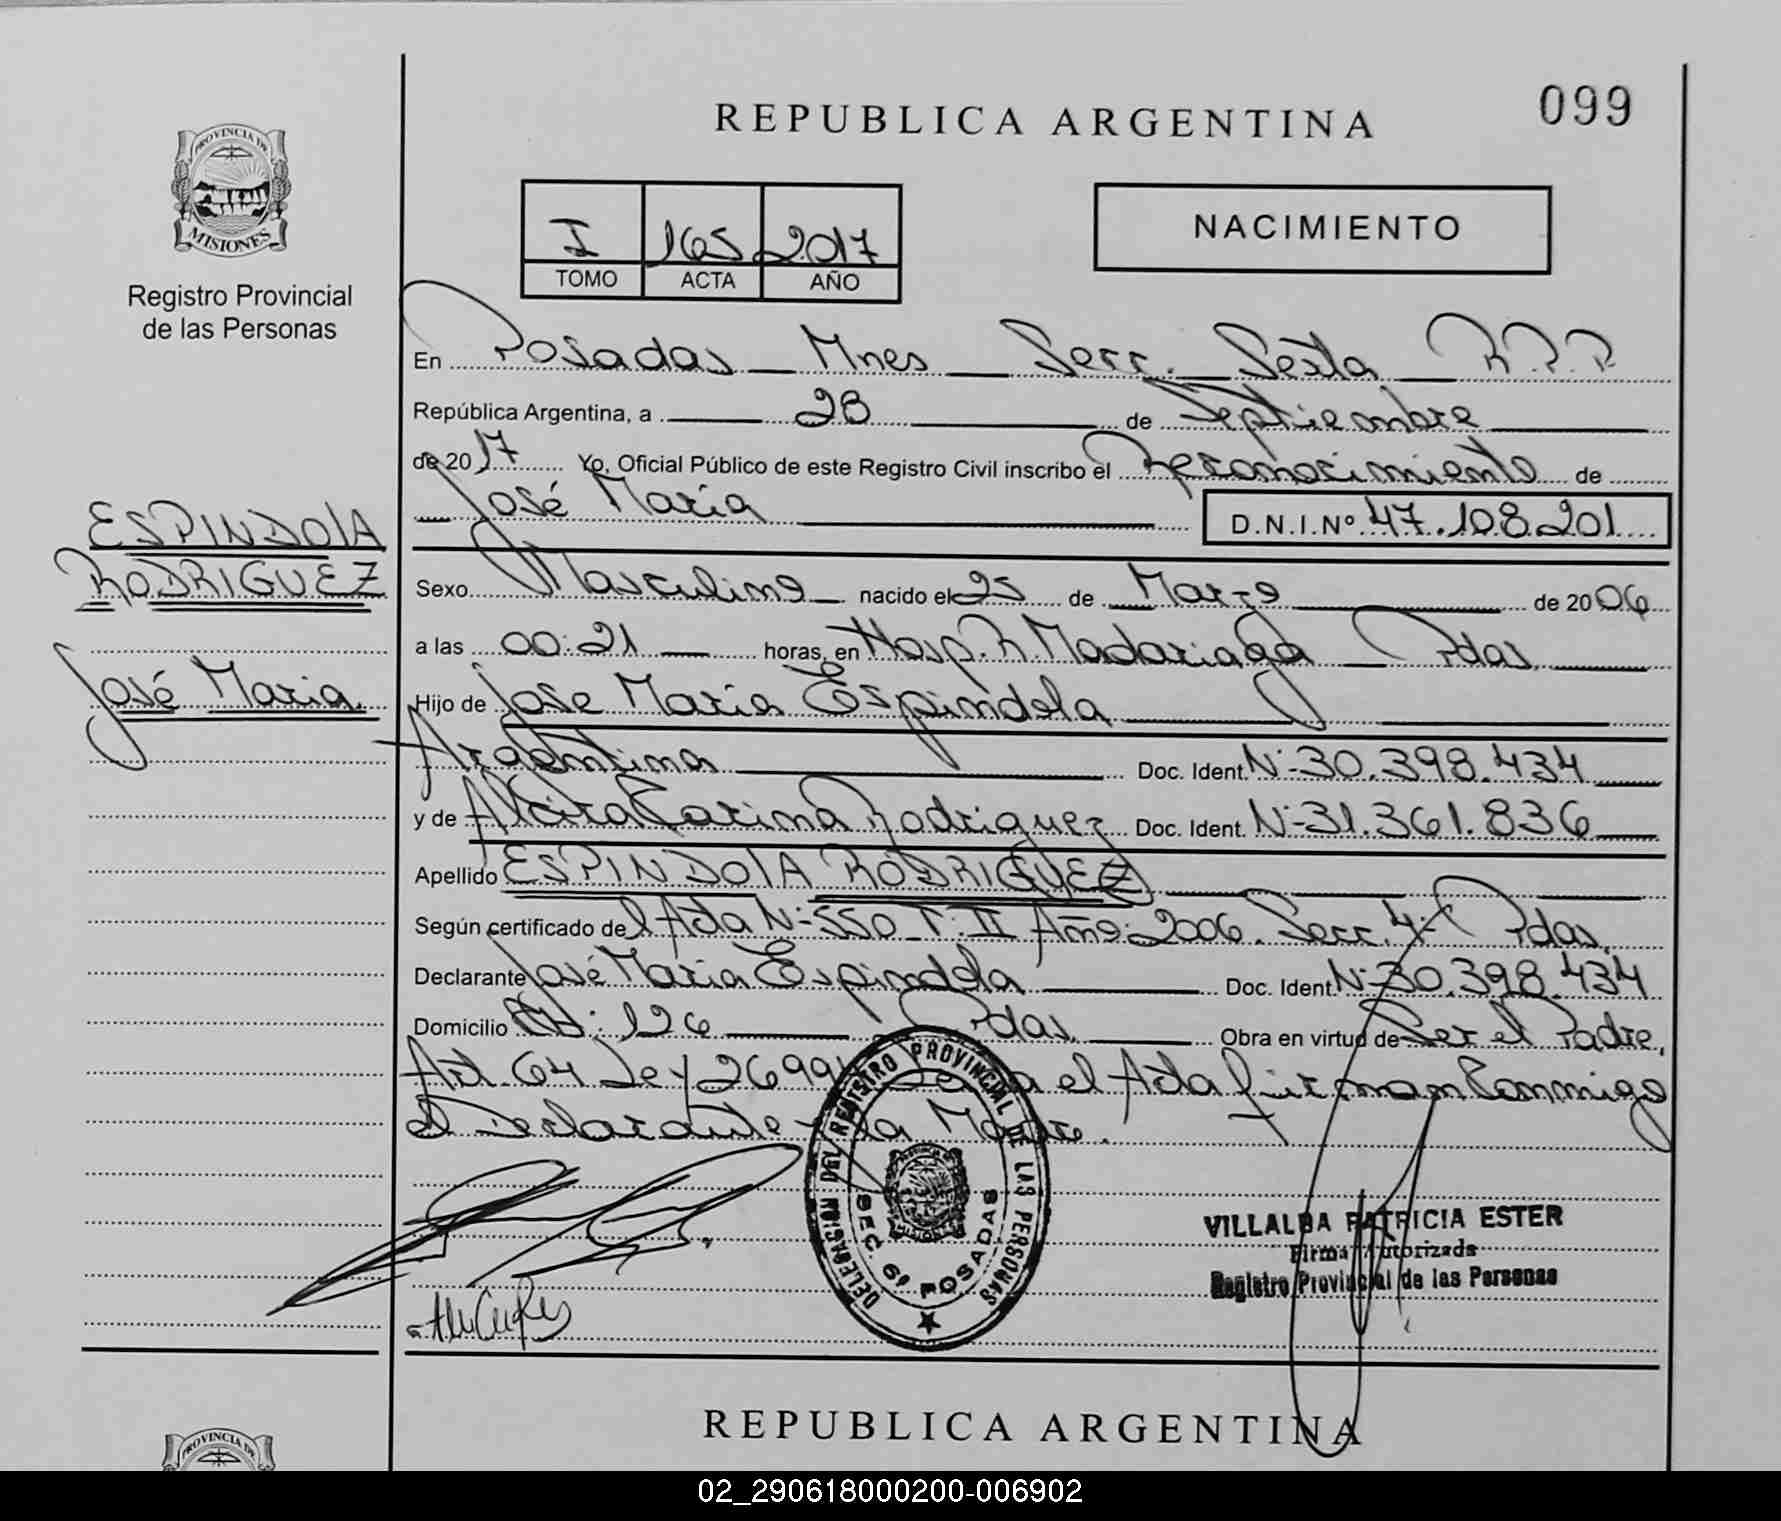 099
REPUBLICA ARGENTINA
PROVINCIA DE
MISIONES
Registro Provincial
de las Personas
I 165 2017
TOMO ACTA AÑO
NACIMIENTO
En Posadas Mnes Secc. Sexta R.P.P.
República Argentina, a 28 de Septiembre
de 2017 Yo, Oficial Público de este Registro Civil inscribo el Reconocimiento de
José María D.N.I.Nº 47.108.201
ESPINDOLA
RODRIGUEZ
José Maria
Sexo Masculino nacido el 25 de Marzo de 2006
a las 00:21 horas, en Hosp. R. Madariaga Pdas.
Hijo de Jose María Espindola
Argentina Doc. Ident. Nº 30.398.434
y de Karina Rodriguez Doc. Ident. Nº 31.361.836
Apellido ESPINDOLA RODRIGUEZ
Según certificado del Acta Nº 550 T: II Año: 2006. Secc. 4ª Pdas.
Declarante José María Espindola Doc. Ident. Nº 30.398.434
Domicilio 126 Pdas. Obra en virtud de Ser el Padre.
Art. 64 Ley 26994 el Acta firman Conmigo
el Declarante y la Madre.
DELEGACION DEL REGISTRO PROVINCIAL DE LAS PERSONAS
MISIONES
SEC. 6ª POSADAS
VILLALBA PATRICIA ESTER
Firma Autorizada
Registro Provincial de las Personas
REPUBLICA ARGENTINA
PROVINCIA DE
02_290618000200-006902